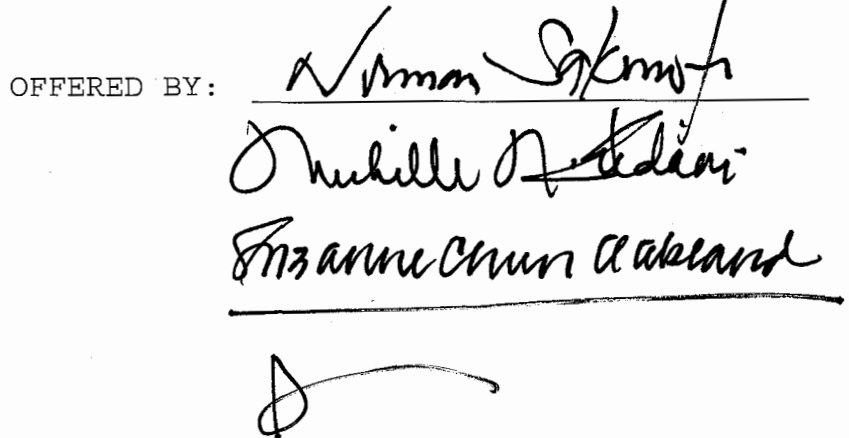 OFFERED BY: Norman Sakamoto
Michelle N. Kidani
Suzanne Chun Oakland